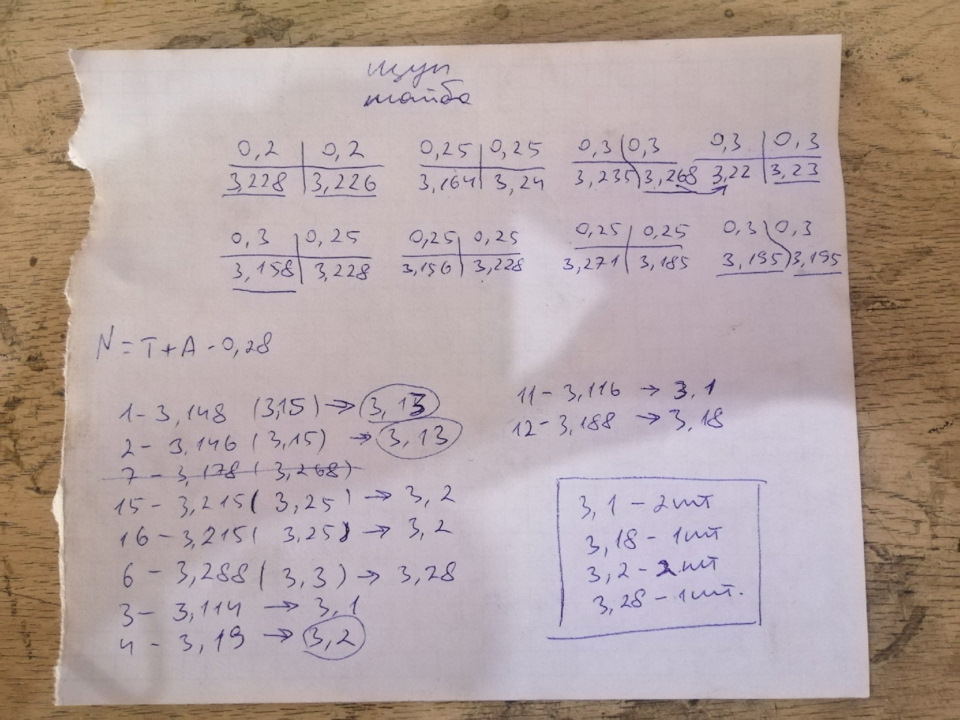 щуп
шайба
0,2 0,2 0,25 0,25 0,3 0,3 0,3 0,3
3,228 3,226 3,164 3,24 3,235 3,268 3,22 3,23
0,3 0,25 0,25 0,25 0,25 0,25 0,3 0,3
3,158 3,228 3,156 3,228 3,271 3,185 3,195 3,195
N = T + A - 0,28
1 - 3,148 (3,15) → 3,13
2 - 3,146 (3,15) → 3,13
7 - 3,178 (3,268)
15 - 3,215 (3,25) → 3,2
16 - 3,215 (3,25) → 3,2
6 - 3,288 (3,3) → 3,28
3 - 3,114 → 3,1
4 - 3,19 → 3,2
11 - 3,116 → 3,1
12 - 3,188 → 3,18
3,1 - 2шт
3,18 - 1шт
3,2 - 2шт
3,28 - 1шт.